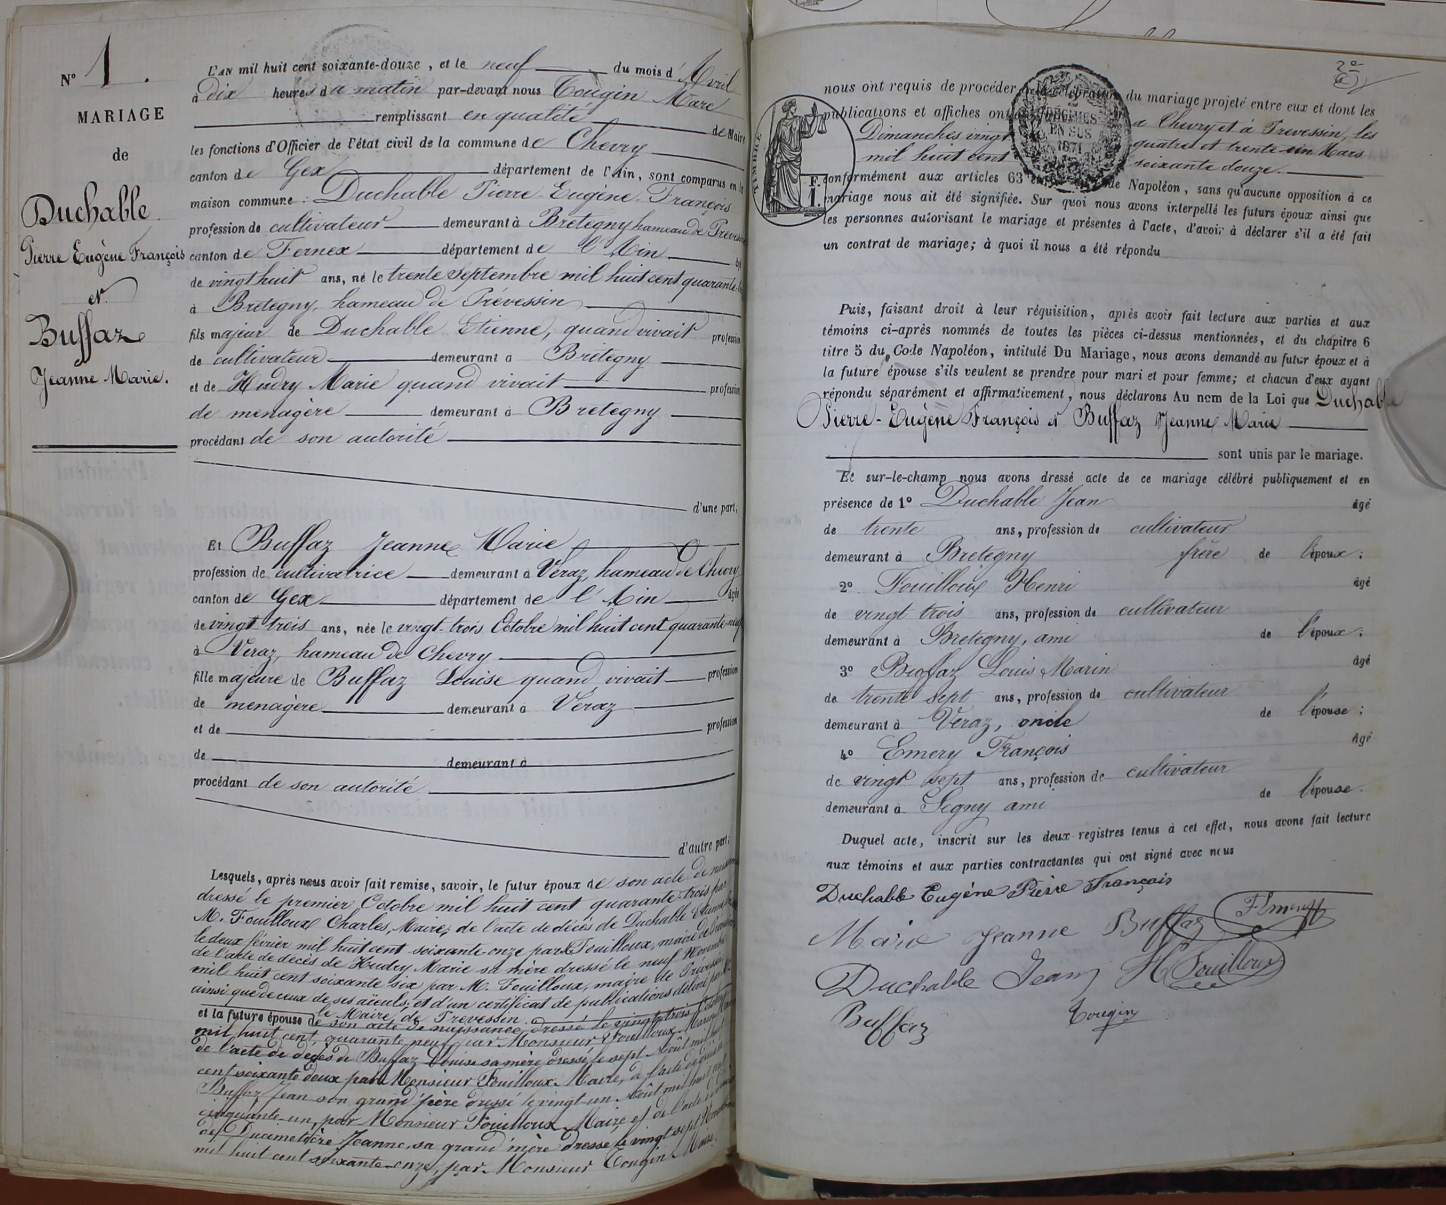 N° 1.
MARIAGE
de
Duchable
Pierre Eugène François
et
Buffaz
Jeanne Marie.
L'AN mil huit cent soixante-douze, et le neuf du mois d'Avril
à dix heures du matin par-devant nous Tougin Marc
remplissant en qualité de Maire
les fonctions d'Officier de l'état civil de la commune de Chevry
canton de Gex département de l'Ain, sont comparus en la
maison commune : Duchable Pierre Eugène François
profession de cultivateur demeurant à Brétegny hameau de Prévessin
canton de Fernex département de l'Ain âgé
de vingt huit ans, né le trente septembre mil huit cent quarante
à Bretegny, hameau de Prévessin
fils majeur de Duchable Etienne, quand vivait profession
de cultivateur demeurant à Brétegny
et de Hudry Marie quand vivait profession
de menagère demeurant à Bretegny
procédant de son autorité
d'une part,
Et Buffaz Jeanne Marie
profession de cultivatrice demeurant à Véraz, hameau de Chevry
canton de Gex département de l'Ain âgée
de vingt trois ans, née le vingt-trois Octobre mil huit cent quarante-neuf
à Véraz, hameau de Chevry
fille majeure de Buffaz Louise quand vivait profession
de menagère demeurant à Véraz
et de profession
de demeurant à
procédant de son autorité
d'autre part,
Lesquels, après nous avoir fait remise, savoir, le futur époux de son acte de
dressé le premier Octobre mil huit cent quarante-trois par
M. Fouilloux Charles, Maire, de l'acte de décès de Duchable Etienne
le deux février mil huit cent soixante-onze par Fouilloux, maire de
de l'acte de décès de Hudry Marie sa mère dressé le neuf Novembre
mil huit cent soixante six par M. Fouilloux, maire de Prévessin
ainsi que de ceux de ses aïeuls, et d'un certificat de publications délivré par M.
le Maire de Prévessin.
et la future épouse de son acte de naissance, dressé le vingt-trois Octobre
mil huit cent quarante neuf par Monsieur Fouilloux, Maire
de l'acte de décès de Buffaz Louise sa mère dressé le sept Août mil huit
cent soixante deux par Monsieur Fouilloux Maire, de l'acte de décès de
Buffaz Jean son grand père dressé le vingt-un Août mil huit cent
cinquante-un, par Monsieur Fouilloux Maire et de l'acte de décès
de Ducimetière Jeanne, sa grand'mère dressé le vingt sept
mil huit cent soixante-onze, par Monsieur Tougin Maire.
2e
nous ont requis de procéder à la célébration du mariage projeté entre eux et dont les
publications et affiches ont à Chevry et à Prevessin, les
Dimanches vingt quatre et trente-un Mars
mil huit cent soixante douze.
conformément aux articles 63 de Napoléon, sans qu'aucune opposition à ce
mariage nous ait été signifiée. Sur quoi nous avons interpellé les futurs époux ainsi que
les personnes autorisant le mariage et présentes à l'acte, d'avoir à déclarer s'il a été fait
un contrat de mariage; à quoi il nous a été répondu
TIMBRE
EN SUS
1871
Puis, faisant droit à leur réquisition, après avoir fait lecture aux parties et aux
témoins ci-après nommés de toutes les pièces ci-dessus mentionnées, et du chapitre 6
titre 5 du Code Napoléon, intitulé Du Mariage, nous avons demandé au futur époux et à
la future épouse s'ils veulent se prendre pour mari et pour femme; et chacun d'eux ayant
répondu séparément et affirmativement, nous déclarons Au nom de la Loi que Duchable
Pierre-Eugène François et Buffaz Jeanne Marie
sont unis par le mariage.
Et sur-le-champ nous avons dressé acte de ce mariage célébré publiquement et en
présence de 1° Duchable Jean âgé
de trente ans, profession de cultivateur
demeurant à Bretegny frère de l'époux;
2° Fouilloux Henri âgé
de vingt trois ans, profession de cultivateur
demeurant à Bretegny, ami de l'époux;
3° Buffaz Louis Marin âgé
de trente sept ans, profession de cultivateur
demeurant à Véraz, oncle de l'épouse;
4° Emery François âgé
de vingt sept ans, profession de cultivateur
demeurant à Segny ami de l'épouse.
Duquel acte, inscrit sur les deux registres tenus à cet effet, nous avons fait lecture
aux témoins et aux parties contractantes qui ont signé avec nous
Duchable Eugène Pierre François
Marie Jeanne Buffaz F Emery
Duchable Jean H Fouilloux
Buffaz Tougin